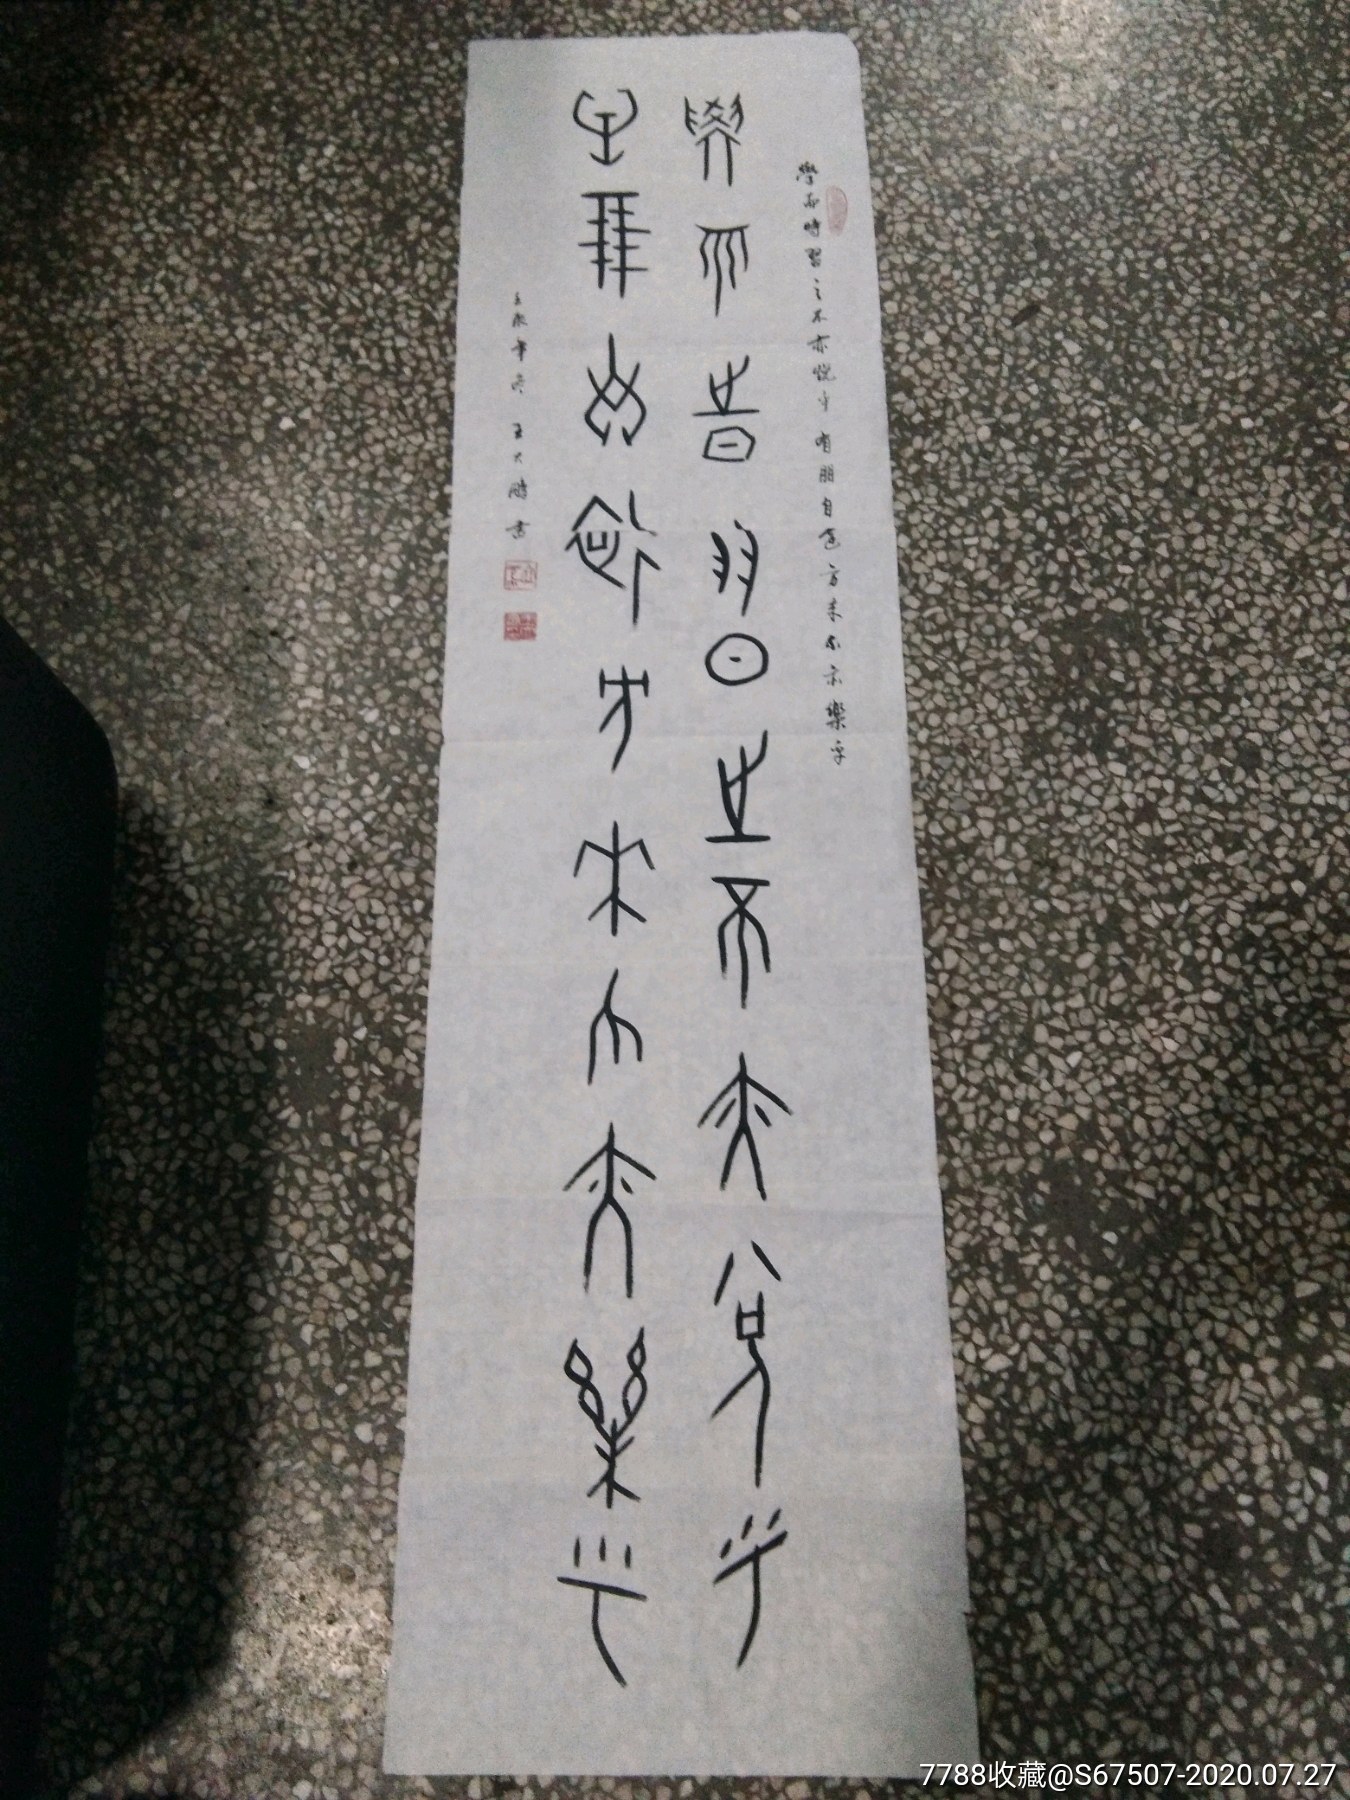 學而時習之不亦悅乎有朋自遠方來不亦樂乎
學而時習之不亦兌乎
有朋自遠方來不亦樂乎
壬辰年冬王大鵬書
7788收藏@S67507-2020.07.27